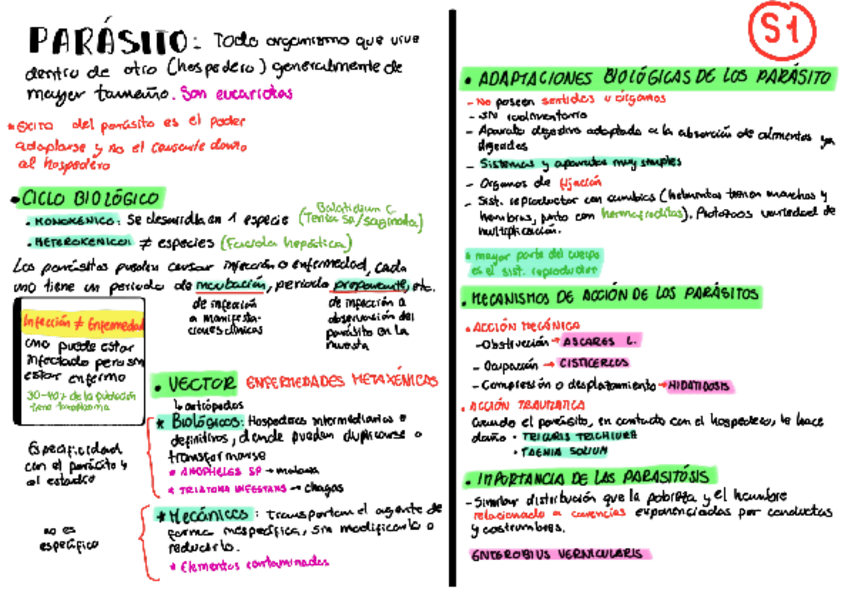 PARÁSITO: Todo organismo que vive
dentro de otro (hospedero) generalmente de
mayor tamaño. Son eucariotas
* Éxito del parásito es el poder
adaptarse y no el causarle daño
al hospedero
• CICLO BIOLÓGICO
• MONOXÉNICO: Se desarrolla en 1 especie (Balatidium C.
Tenia sa/saginata)
• HETEROXÉNICO: ≠ especies (Faciola hepática)
Los parásitos pueden causar infección o enfermedad, cada
uno tiene un periodo de incubación, periodo prepatente, etc.
de infección
a manifesta-
ciones clínicas
de infección a
observación del
parásito en la
muestra
Infección ≠ Enfermedad
uno puede estar
infectado pero sin
estar enfermo
30-40% de la población
tiene toxoplasma
• VECTOR ENFERMEDADES METAXÉNICAS
↳ artópodos
Especificidad
con el parásito y
el estadio
* Biológicos: Hospederos intermediarios o
definitivos, donde puedan duplicarse o
transformarse
* ANOPHELES SP → malaria
* TRIATOMA INFESTANS → chagas
no es
específico
* Mecánicos: transportan el agente de
forma inespecífica, sin modificarlo o
reducirlo.
* Elementos contaminados
S1
• ADAPTACIONES BIOLÓGICAS DE LOS PARÁSITO
- No poseen sentidos u órganos
- SN rudimentario
- Aparato digestivo adaptado a la absorción de alimentos ya
digeridos
- Sistemas y aparatos muy simples
- Organos de fijación
- Sist. reproductor con cambios (helmintos tienen machos y
hembras, junto con hermafroditas). Protozoos variedad de
multiplicación.
* mayor parte del cuerpo
es el sist. reproductor
• MECANISMOS DE ACCIÓN DE LOS PARÁSITOS
• ACCIÓN MECÁNICA
- Obstrucción → ASCARIS L.
- Ocupación → CISTICERCOS
- Compresión o desplazamiento → HIDATIDOSIS
• ACCIÓN TRAUMATICA
Cuando el parásito, en contacto con el hospedero, le hace
daño • TRICURIS TRICHIURA
• TAENIA SOLIUM
• IMPORTANCIA DE LAS PARASITÓSIS
- Similar distribución que la pobreza y el hambre
relacionado a carencias experienciadas por conductas
y costumbres.
ENTEROBIUS VERMICULARIS